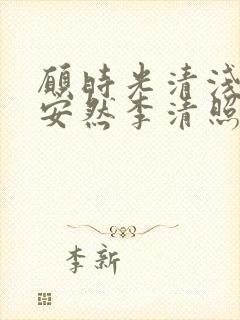 願時光清淺
安然李清照
李新